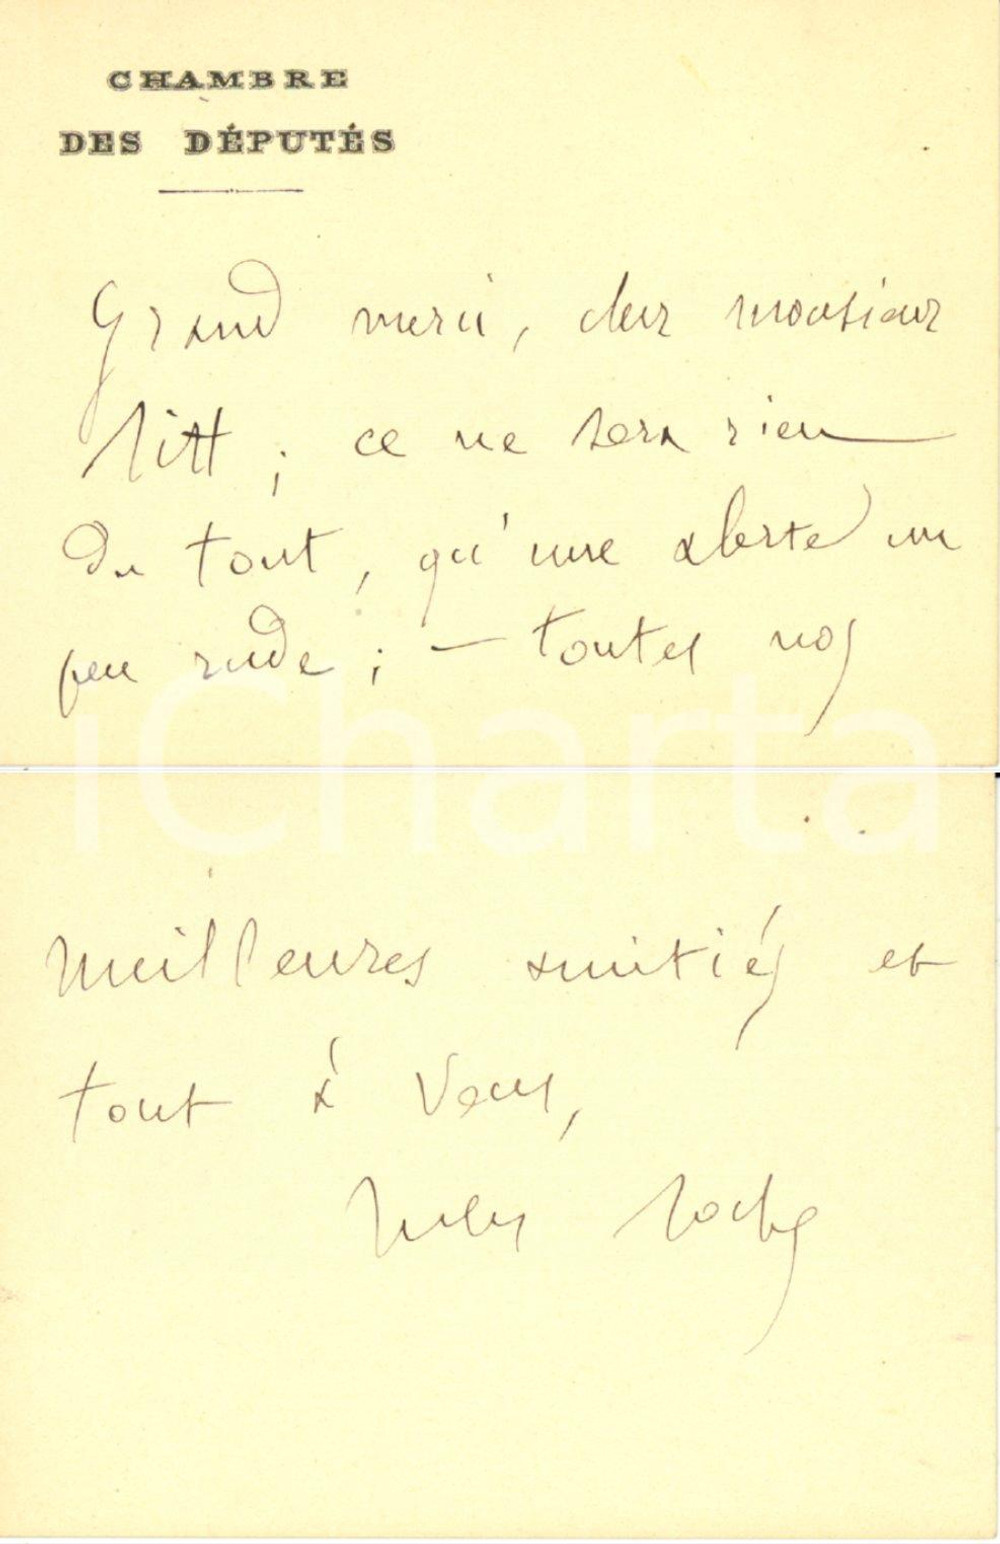 CHAMBRE
DES DÉPUTÉS
Grand merci, cher monsieur
Ritt ; ce ne sera rien
du tout, qu'une alerte un
peu rude ; — toutes nos
iCharta
meilleures amitiés et
tout à vous,
Jules Roche